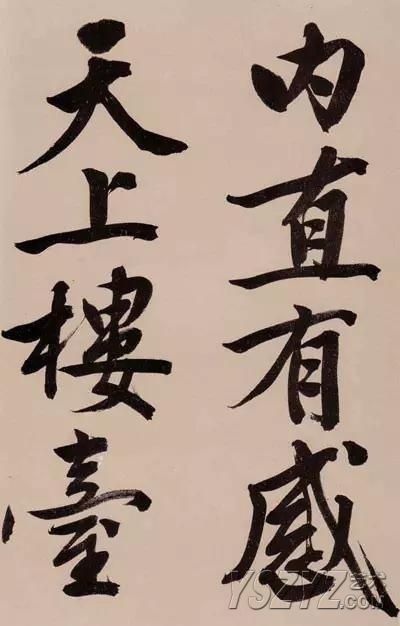 内直有感
天上樓臺
YSZYZ.艺术